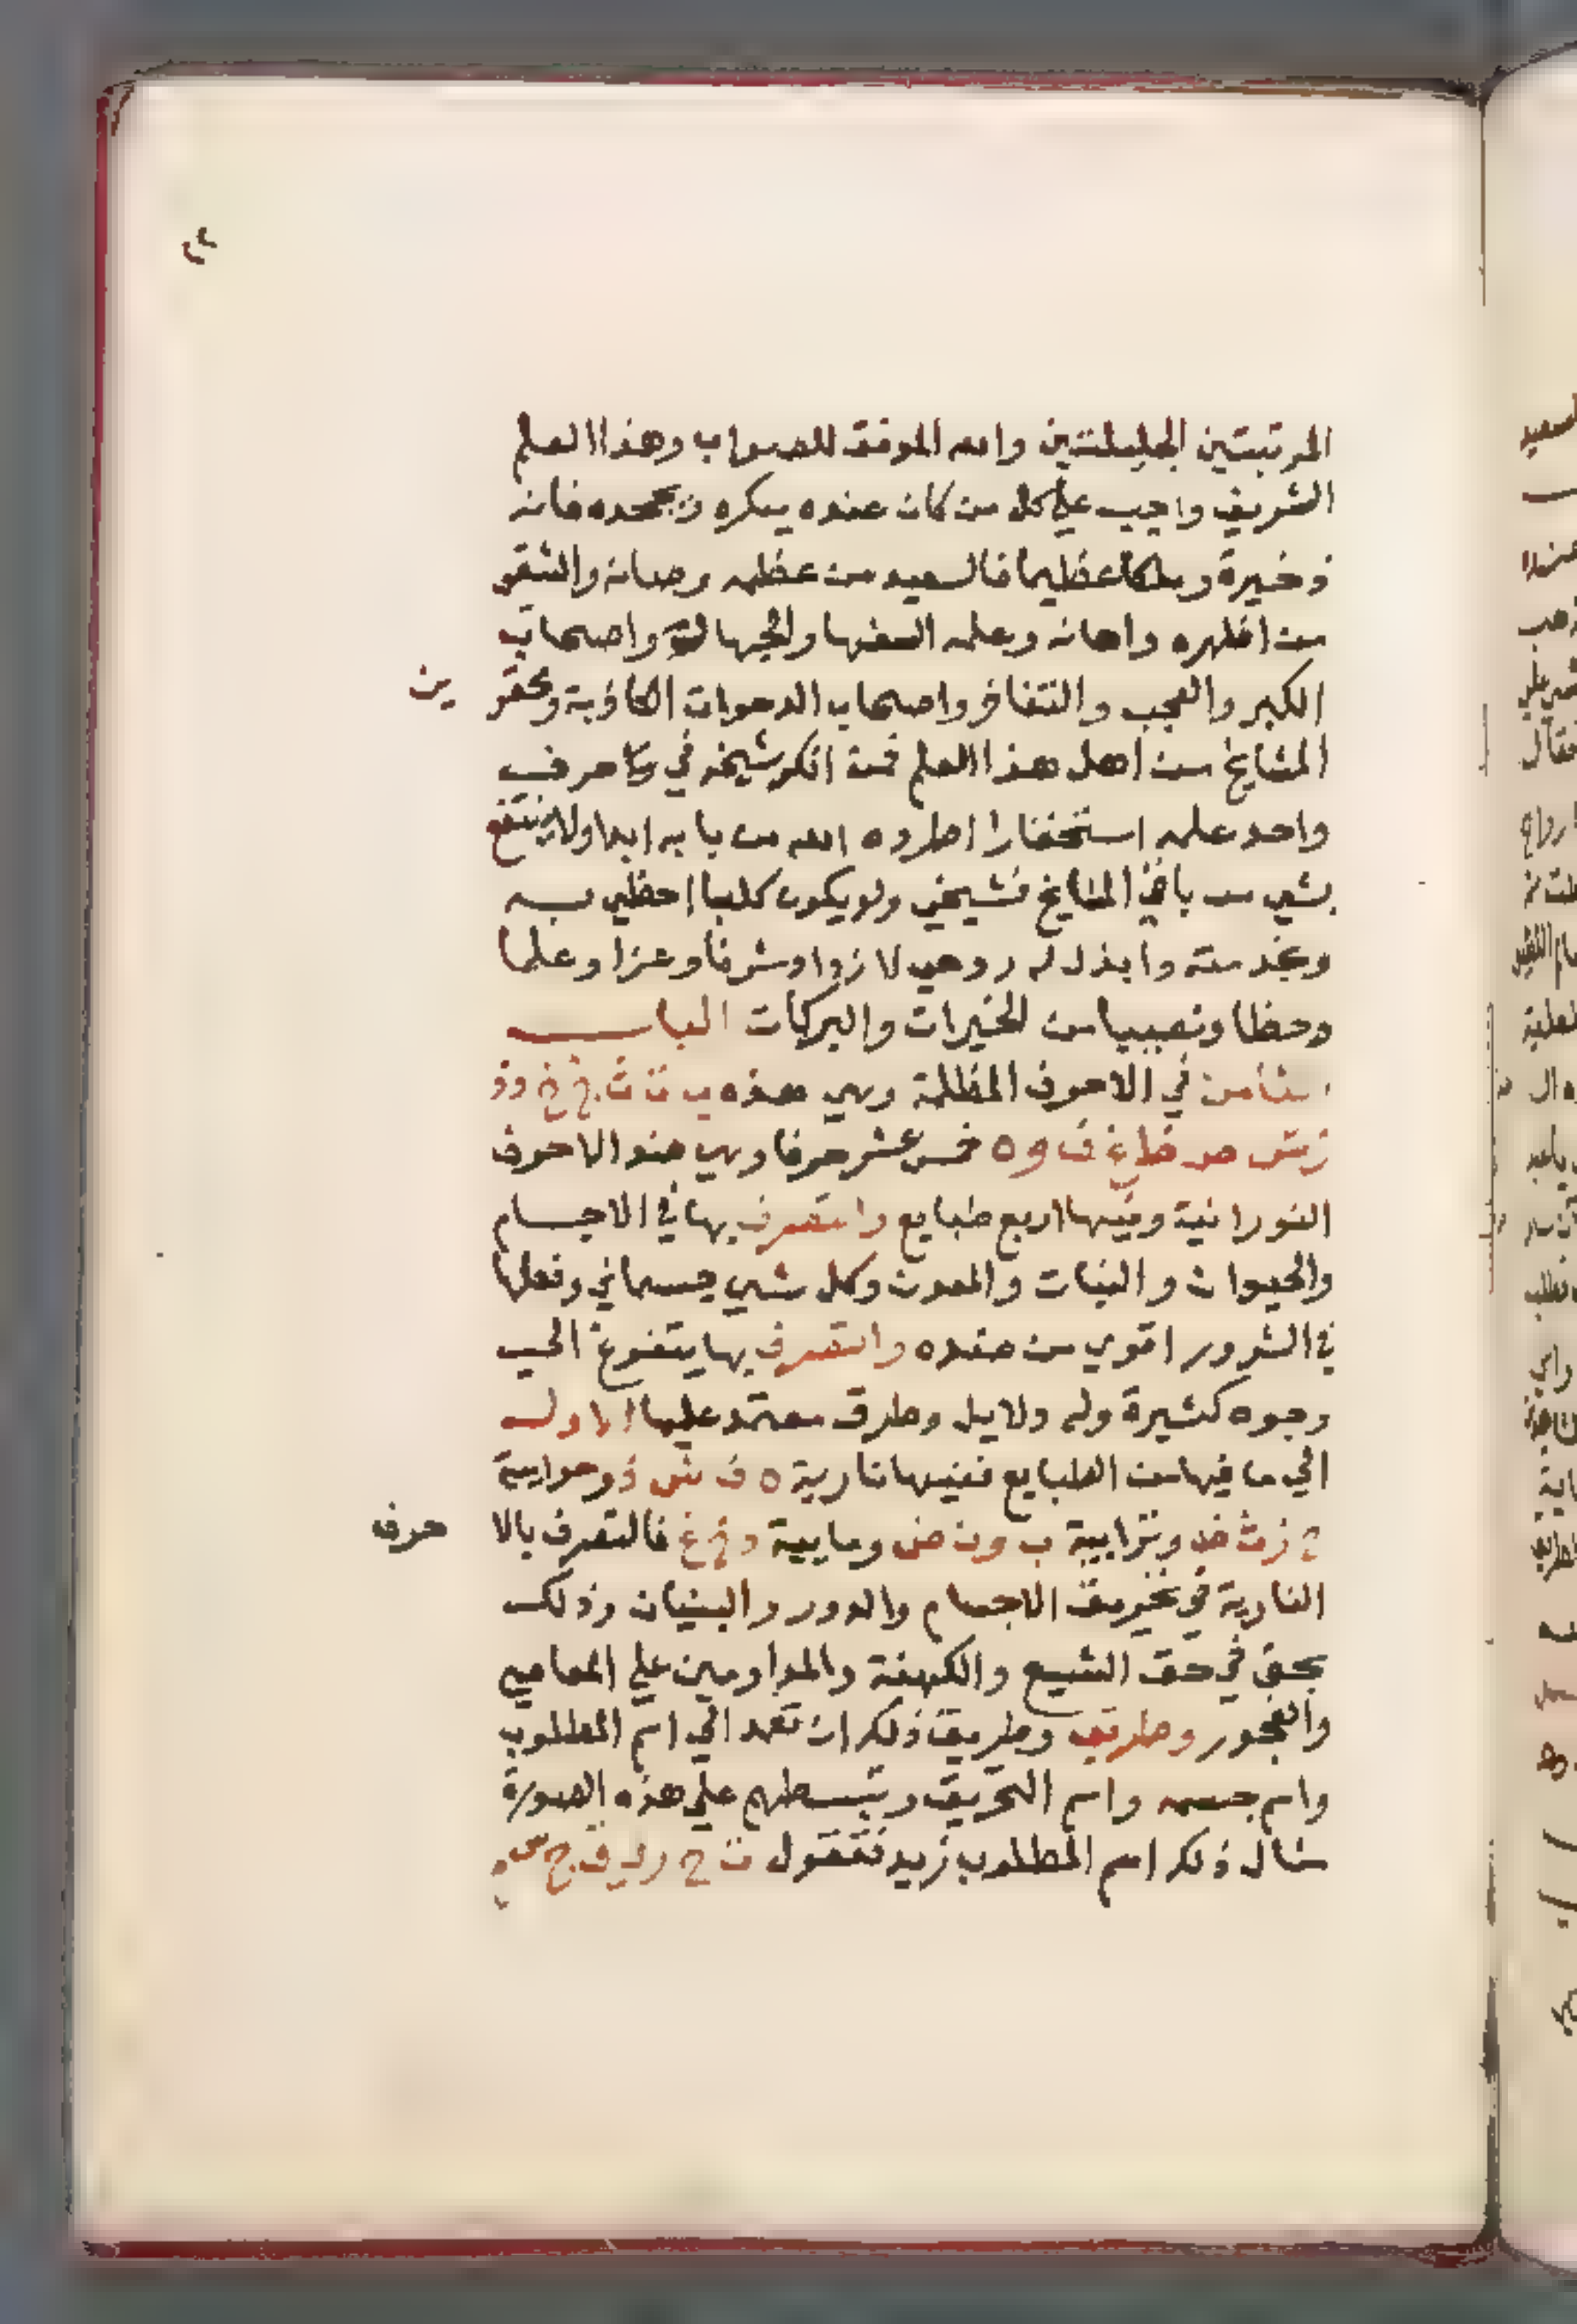 ٢٢
المرتبتين الجليلتين والله الموفق للصواب وهذا العلم
الشريف واجب علي كل من كان عنده ينكره ويجحده فانه
ذخيرة وملكا عظيما فالسعيد من عظمه وصانه والشقي
من اظهره واهانه وعلمه السفها والجهالة واصحاب
الكبر والعجب والتفاخر واصحاب الدعوات الكاذبة ومحقرين
المشايخ من اهل هذا العلم فمن انكر شيخه في حرف
واحد علمه استحقارا اطرده الله من بابه ابدا ولا ينتفع
بشي من باقي المشايخ فشيخي ولو يكون كلبا احظي به
وبخدمته وابذل له روحي لازداد شرفا وعزا وعلما
وحظا ونصيبا من الخيرات والبركات الباب
الثامن في الاحرف المظلمة وهي هذه ب ت ث ج خ د ذ
ز ش ض ظ غ ف و ه خمس عشر حرفا وهي ضد الاحرف
النورانية وفيها اربع طبايع والتصرف بها في الاجسام
والحيوان والنبات والمعدن وكل شي جسماني وفعلها
في الشرور اقوي من ضده والتصرف بها يتفرع الي
وجوه كثيرة وله دلايل وطرق معتمد عليها الاول
الي ما فيها من الطبايع ففيها نارية ه ف ش ذ وهوايية
ج ز ث ظ وترابية ب و ت ض ومايية د خ غ فالتصرف بالاحرف
النارية في تخريب الاجسام والدور والبنيان وذلك
بحق في حق الشيع والكهنة والمداومين علي المعاصي
والفجور وطريق وطريق ذلك ان تعمد الي اسم المطلوب
واسم جسمه واسم التحريق وتبسطهم علي هذه الصورة
مثال ذلك اسم المطلوب زيد فتقول ت ح ر ي ق ج س م